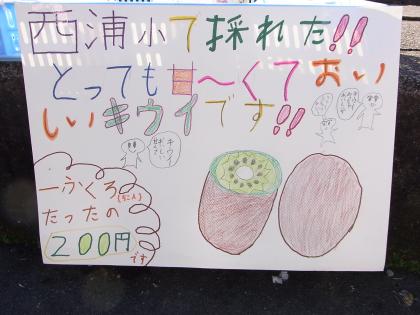 西浦小で採れた!!
とっても甘〜くておい
しいキウイです!!
キウイ
おいしい
一ふくろ
たったの
200円
です